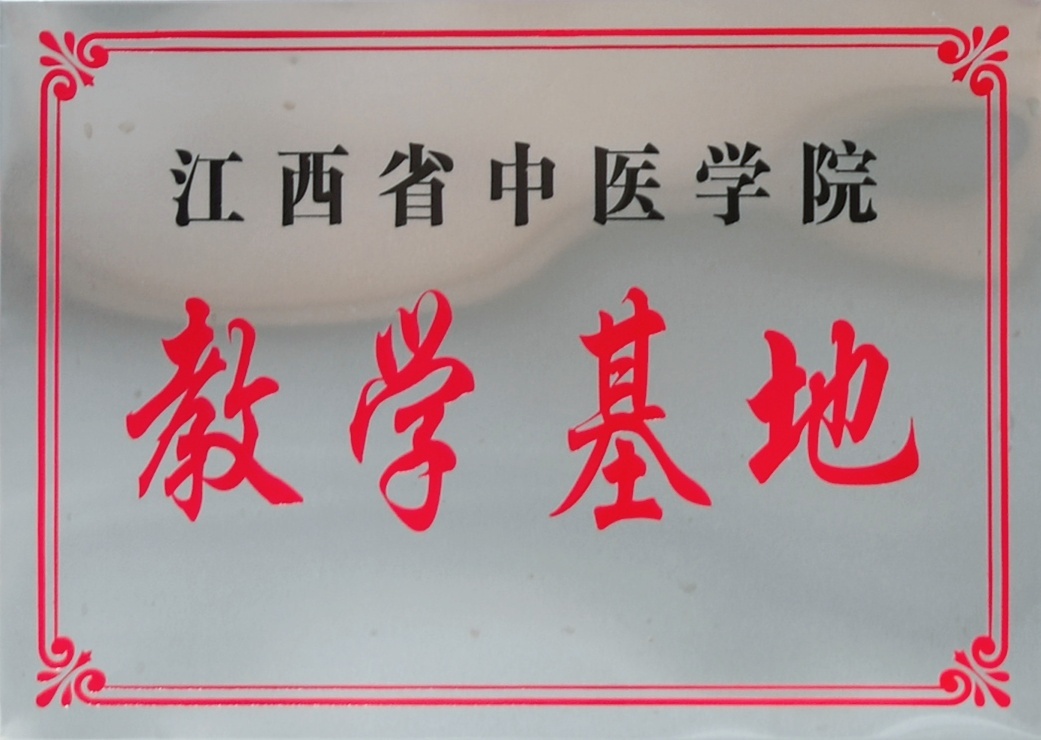 江西省中医学院
教学基地